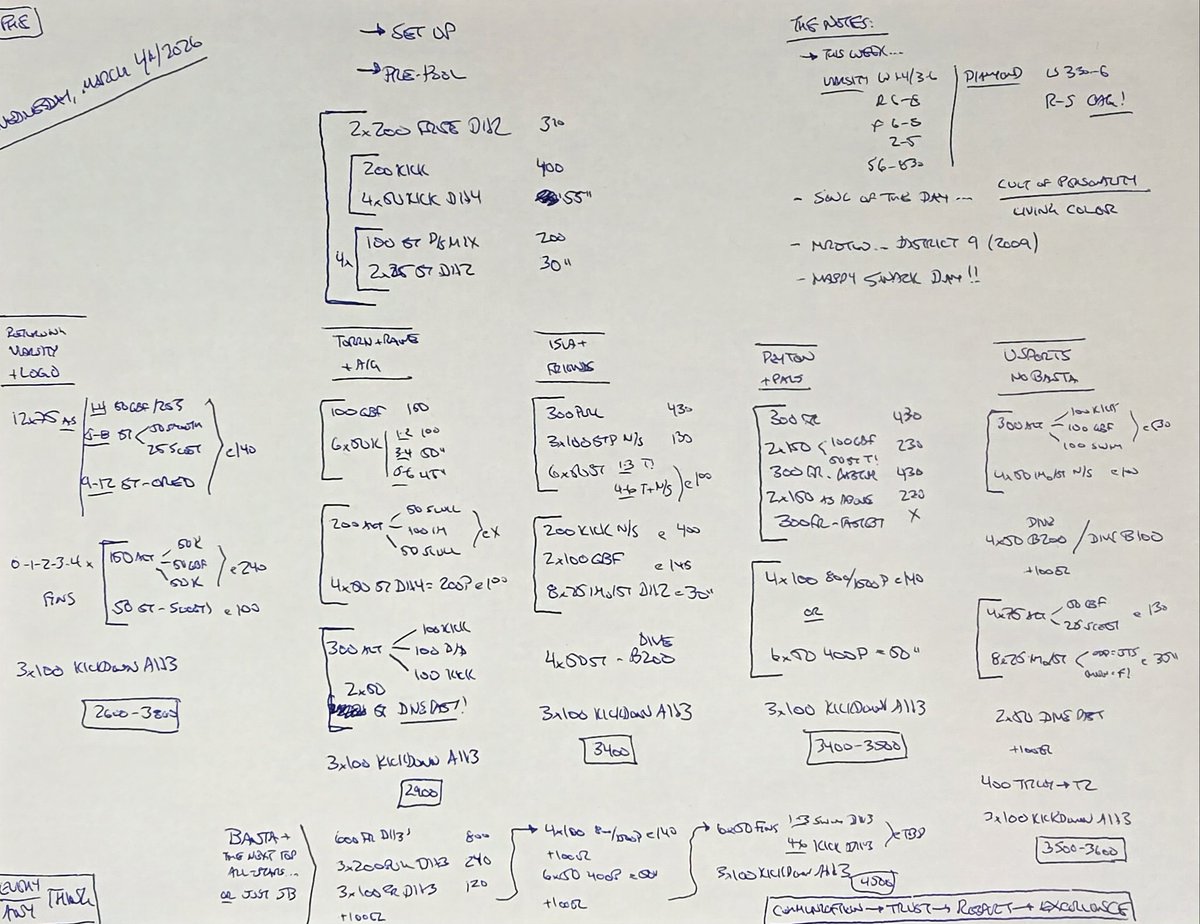 PRE
WEDNESDAY, MARCH 4th/2026
→ SET UP
→ PRE-POOL
2x200 FREE D1→2 310
200 KICK 400
4x50 KICK D1→4 55"
4x
100 ST P/S MIX 200
2x25 ST D1→2 30"
THE NOTES:
→ THIS WEEK...
VARSITY W 1-4/3-6
R 6-8
F 6-8
2-5
S6-830
DIAMOND W 330-6
R-S OAG!
- SONG OF THE DAY... CULT OF PERSONALITY
LIVING COLOR
- MROTW... DISTRICT 9 (2009)
- HAPPY SNACK DAY!!
RETURNING
VARSITY
+ LOGO
12x75 AS
1-4 50 GBF/25 S
5-8 ST 50 SMOOTH
25 SCOST
9-12 ST-
e 140
0-1-2-3-4x
FINS
150 ALT 50K
50 GBF
50 K
e 240
50 ST - SCOST) e 100
3x100 KICKDOWN A1→3
2600-3800
+ A/G
100 GBF 150
6x50K 1-2 100
3-4 50"
5-6 45"
200 ALT 50 SCULL
100 IM
50 SCULL
e X
4x50 ST D1→4 = 200P e 100
300 ALT 100 KICK
100 D/S
100 KICK
2x50
DIVE
3x100 KICKDOWN A1→3
2900
ISLA +
FRIENDS
300 PULL 430
3x100 STP N/S 130
6x50 ST 1-3 T!
4-6 T+N/S
e 100
200 KICK N/S e 400
2x100 GBF e 145
8x25 IMO/ST D1→2 e 30"
DIVE
4x50 ST - B200
3x100 KICKDOWN A1→3
3400
PEYTON
+ PALS
300 FR 430
2x150 100 GBF
50 ST T!
230
300 FR - FASTER 430
2x150 AS ABOVE 220
300 FR - FASTEST X
4x100 800/1500P e 140
OR
6x50 400P = 50"
3x100 KICKDOWN A1→3
3400-3500
USPORTS
NO BASTA
300 ALT 100 KICK
100 GBF
100 SWM
e 530
4x50 IMO/ST N/S e 100
DIVE
4x50 B200 / DIVE B100
+100 EZ
4x75 ALT 50 GBF
25 SCOST
e 130
8x25 IMO/ST
e 35"
+100 EZ
3x100 KICKDOWN A1→3
3500-3600
BASTA +
THE NEXT TOP
ALL-STARS...
OR JUST SB
600 FR D1→3 800
3x200 PULL D1→3 240
3x100 FR D1→3 120
+100 EZ
→ 4x100 800/1500P e 140
+100 EZ
6x50 400P = 50"
+100 EZ
→ 6x50 FINS 1-3 SWIM D1→3
4-6 KICK D1→3
3x100 KICKDOWN A1→3
4500
COMMUNICATION → TRUST → RESPECT → EXCELLENCE